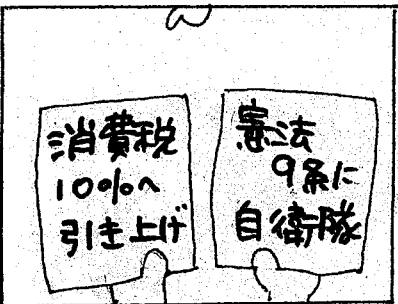 消費税
10%へ
引き上げ
憲法
9条に
自衛隊